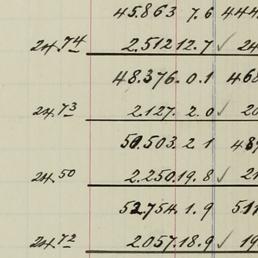 45.863 7.6 444
24.74 2.512 12.7 ✓ 24
48.376. 0.1 468
24.73 2.127. 2.0 ✓ 20
50.503. 2 1 489
24.50 2.250 19.8 ✓ 21
52.754. 1.9 511
24.72 2057. 18.9 ✓ 19